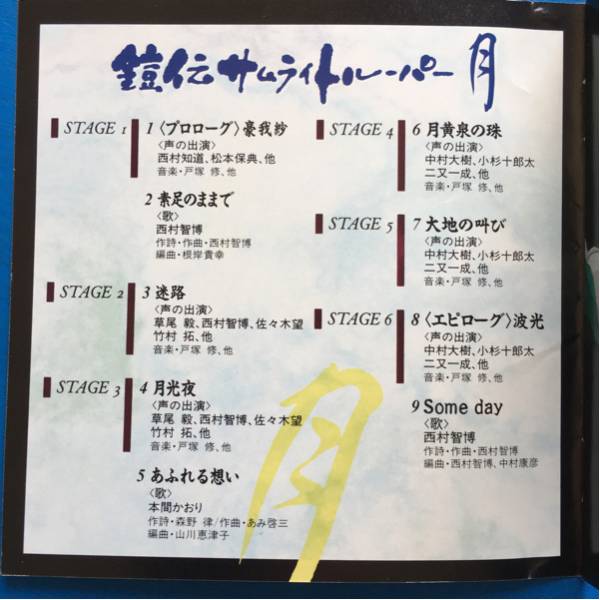 鎧伝サムライトルーパー 月
STAGE 1
1〈プロローグ〉豪我紗
〈声の出演〉
西村知道、松本保典、他
音楽・戸塚 修、他
2 素足のままで
〈歌〉
西村智博
作詩・作曲・西村智博
編曲・根岸貴幸
STAGE 2
3 迷路
〈声の出演〉
草尾 毅、西村智博、佐々木望
竹村 拓、他
音楽・戸塚 修、他
STAGE 3
4 月光夜
〈声の出演〉
草尾 毅、西村智博、佐々木望
竹村 拓、他
音楽・戸塚 修、他
5 あふれる想い
〈歌〉
本間かおり
作詩・森野 律/作曲・あみ啓三
編曲・山川恵津子
STAGE 4
6 月黄泉の珠
〈声の出演〉
中村大樹、小杉十郎太
二又一成、他
音楽・戸塚 修、他
STAGE 5
7 大地の叫び
〈声の出演〉
中村大樹、小杉十郎太
二又一成、他
音楽・戸塚 修、他
STAGE 6
8〈エピローグ〉波光
〈声の出演〉
中村大樹、小杉十郎太
二又一成、他
音楽・戸塚 修、他
9 Some day
〈歌〉
西村智博
作詩・作曲・西村智博
編曲・西村智博、中村康彦
月